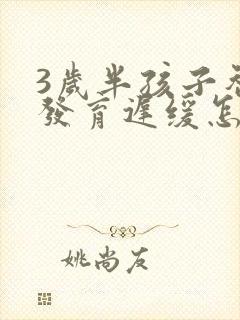 3歲半孩子
發育遲緩怎
姚尚友